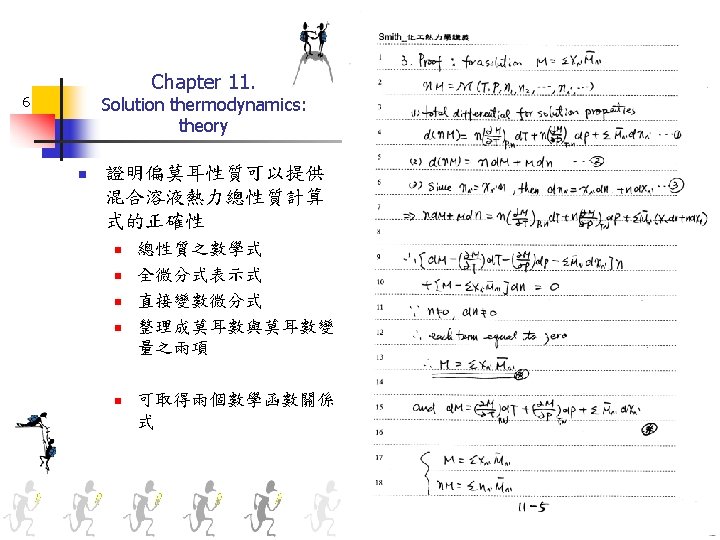 Chapter 11.
6
Solution thermodynamics:
theory
證明偏莫耳性質可以提供
混合溶液熱力總性質計算
式的正確性
總性質之數學式
全微分式表示式
直接變數微分式
整理成莫耳數與莫耳數變
量之兩項
可取得兩個數學函數關係
式
Smith_化工熱力學講義
1 3. Proof : for a solution M = Σxᵢ M̄ᵢ
2 nM = M(T, P, n₁, n₂, ..., nᵢ, ...)
3 (1) total differential for solution properties
4 d(nM) = n(∂M/∂T)P,n dT + n(∂M/∂P)T,n dP + Σ M̄ᵢ dnᵢ ... ①
5 (2) d(nM) = n dM + M dn ... ②
6 (3) Since nᵢ = xᵢ n, then dnᵢ = xᵢ dn + n dxᵢ ... ③
7 ⇒ n dM + M dn = n(∂M/∂T)P,n dT + n(∂M/∂P)T,n dP + Σ M̄ᵢ (xᵢ dn + n dxᵢ)
8
9 ∴ [dM − (∂M/∂T) dT − (∂M/∂P) dP − Σ M̄ᵢ dxᵢ] n
10 + [M − Σxᵢ M̄ᵢ] dn = 0
11 ∵ n≠0, dn≠0
12 ∴ each term equal to zero
13 ∴ M = Σxᵢ M̄ᵢ
14
15 and dM = (∂M/∂T)P,n dT + (∂M/∂P)T,n dP + Σ M̄ᵢ dxᵢ
16
17 M = Σxᵢ M̄ᵢ
18 nM = Σ nᵢ M̄ᵢ
11-5